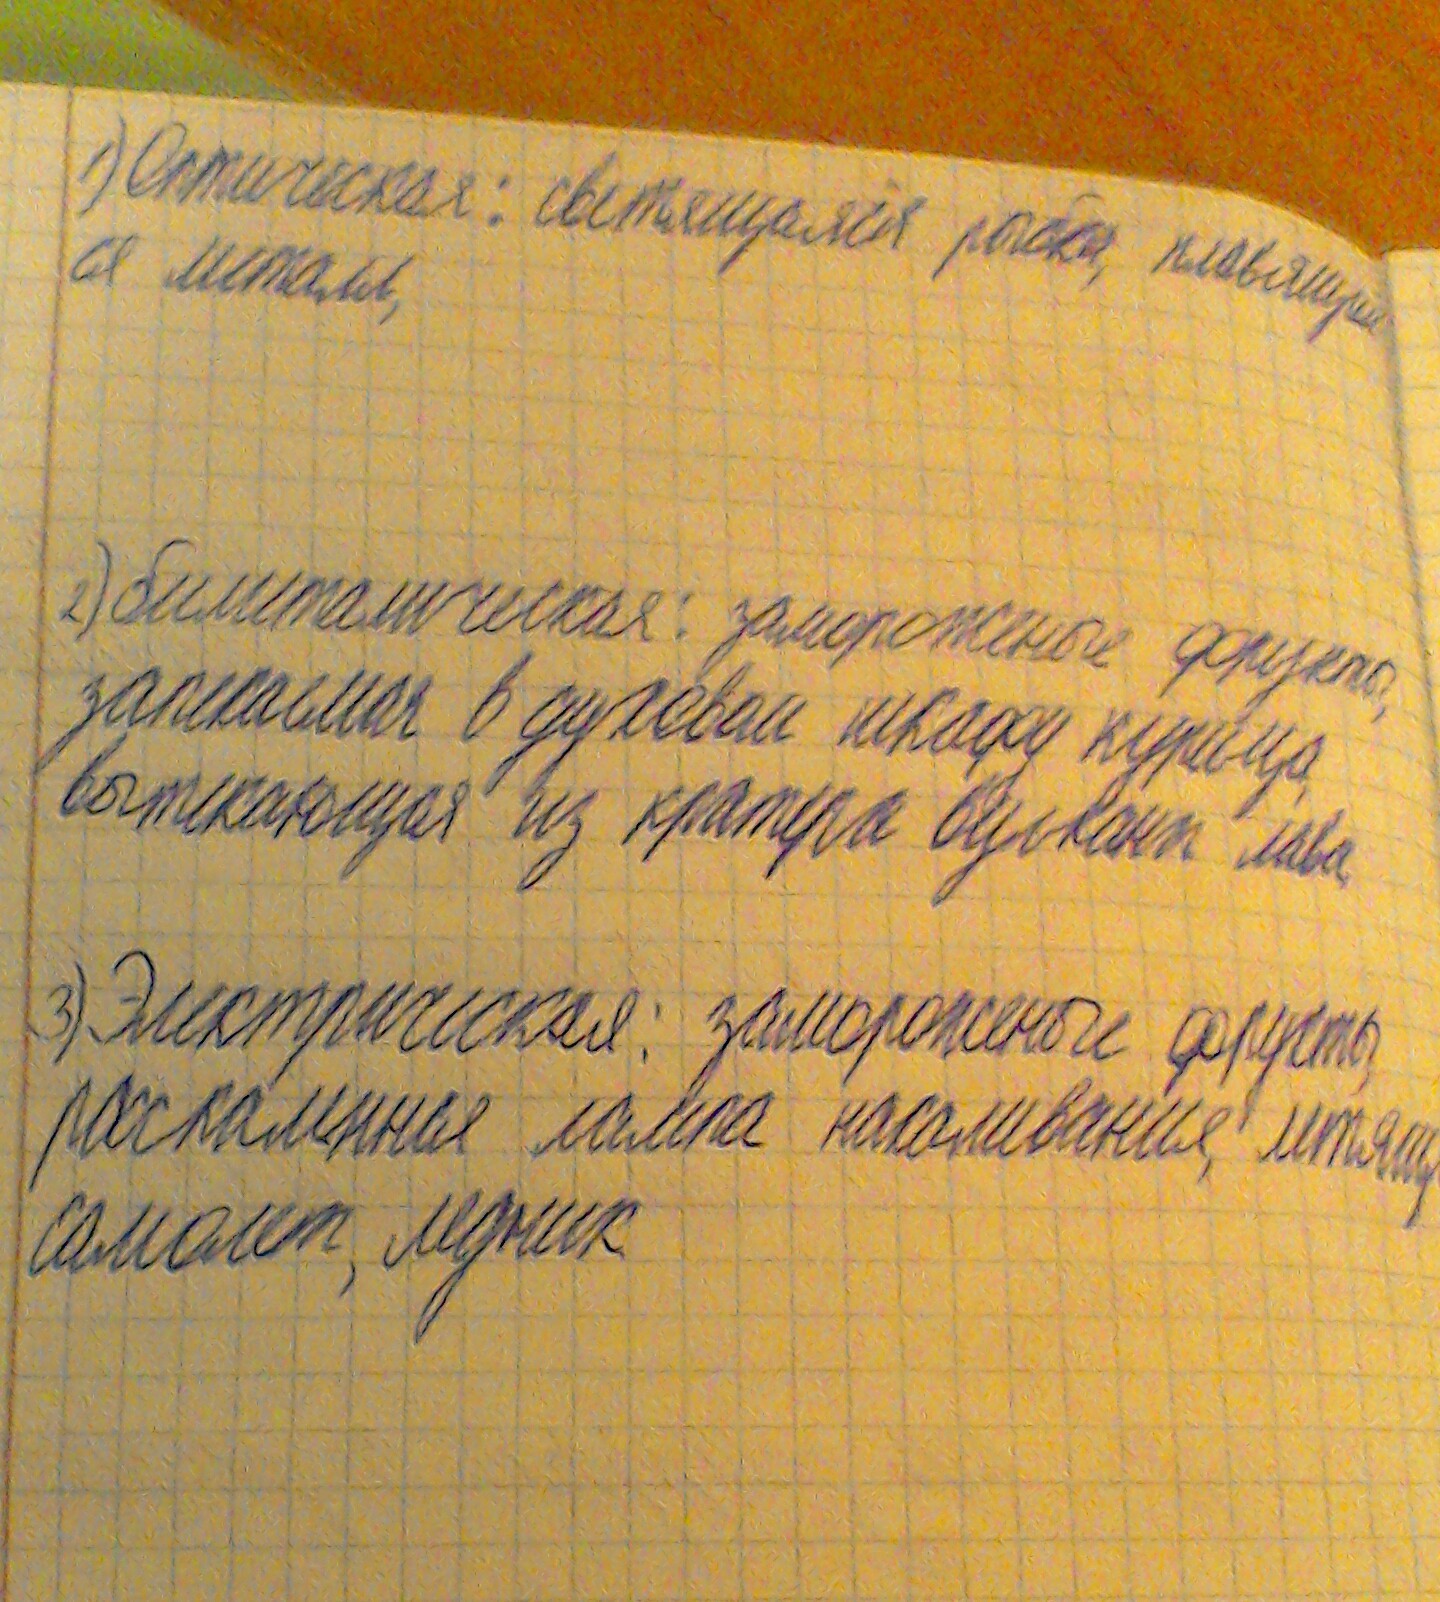 1) Оптическая: светящаяся рыбка, плавящий
ся металл,
2) биметаллическая: замороженые фрукты,
запекаемая в духовом шкафу курица,
вытекающая из кратера вулкана лава.
3) Электрическая: замороженые фрукты,
раскаленная лампа накаливания, летящ
самолет, ледник